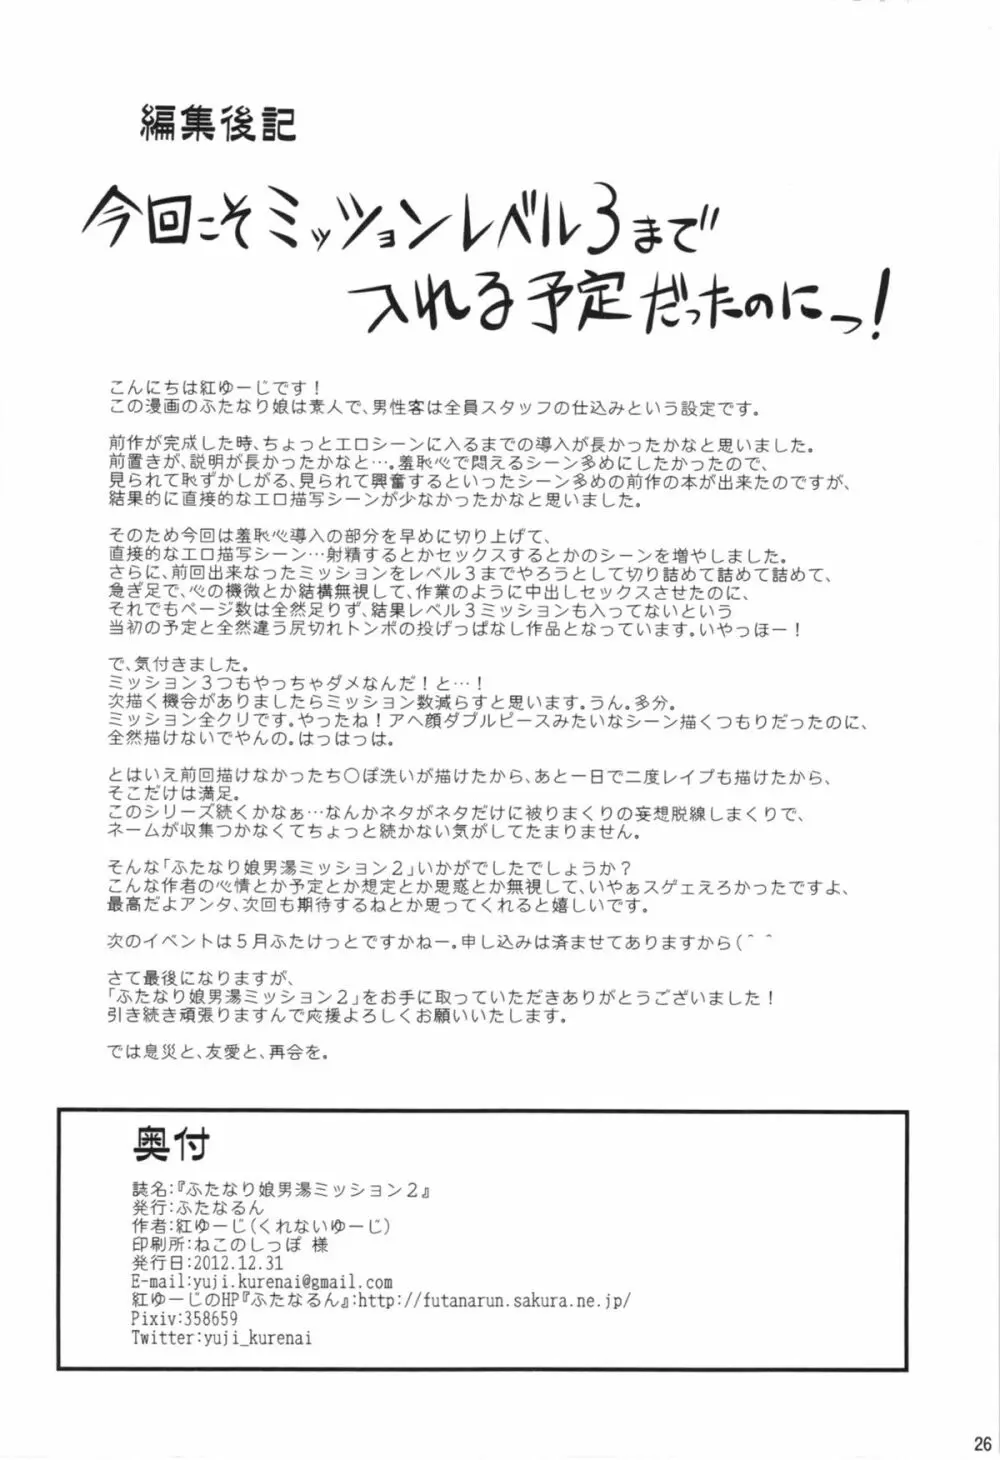 編集後記
今回こそミッションレベル3まで
入れる予定だったのにっ!
こんにちは紅ゆーじです!
この漫画のふたなり娘は素人で、男性客は全員スタッフの仕込みという設定です。
前作が完成した時、ちょっとエロシーンに入るまでの導入が長かったかなと思いました。
前置きが、説明が長かったかなと…。羞恥心で悶えるシーン多めにしたかったので、
見られて恥ずかしがる、見られて興奮するといったシーン多めの前作の本が出来たのですが、
結果的に直接的なエロ描写シーンが少なかったかなと思いました。
そのため今回は羞恥心導入の部分を早めに切り上げて、
直接的なエロ描写シーン…射精するとかセックスするとかのシーンを増やしました。
さらに、前回出来なったミッションをレベル3までやろうとして切り詰めて詰めて詰めて、
急ぎ足で、心の機微とか結構無視して、作業のように中出しセックスさせたのに、
それでもページ数は全然足りず、結果レベル3ミッションも入ってないという
当初の予定と全然違う尻切れトンボの投げっぱなし作品となっています。いやっほー!
で、気付きました。
ミッション3つもやっちゃダメなんだ!と…!
次描く機会がありましたらミッション数減らすと思います。うん。多分。
ミッション全クリです。やったね!アヘ顔ダブルピースみたいなシーン描くつもりだったのに、
全然描けないでやんの。はっはっは。
とはいえ前回描けなかったち○ぽ洗いが描けたから、あと一日で二度レイプも描けたから、
そこだけは満足。
このシリーズ続くかなぁ…なんかネタがネタだけに被りまくりの妄想脱線しまくりで、
ネームが収集つかなくてちょっと続かない気がしてたまりません。
そんな「ふたなり娘男湯ミッション2」いかがでしたでしょうか?
こんな作者の心情とか予定とか想定とか思惑とか無視して、いやぁスゲェえろかったですよ、
最高だよアンタ、次回も期待するねとか思ってくれると嬉しいです。
次のイベントは5月ふたけっとですかねー。申し込みは済ませてありますから(＾＾
さて最後になりますが、
「ふたなり娘男湯ミッション2」をお手に取っていただきありがとうございました!
引き続き頑張りますんで応援よろしくお願いいたします。
では息災と、友愛と、再会を。
奥付
誌名:『ふたなり娘男湯ミッション2』
発行:ふたなるん
作者:紅ゆーじ(くれないゆーじ)
印刷所:ねこのしっぽ 様
発行日:2012.12.31
E-mail:yuji.kurenai@gmail.com
紅ゆーじのHP『ふたなるん』:http://futanarun.sakura.ne.jp/
Pixiv:358659
Twitter:yuji_kurenai
26